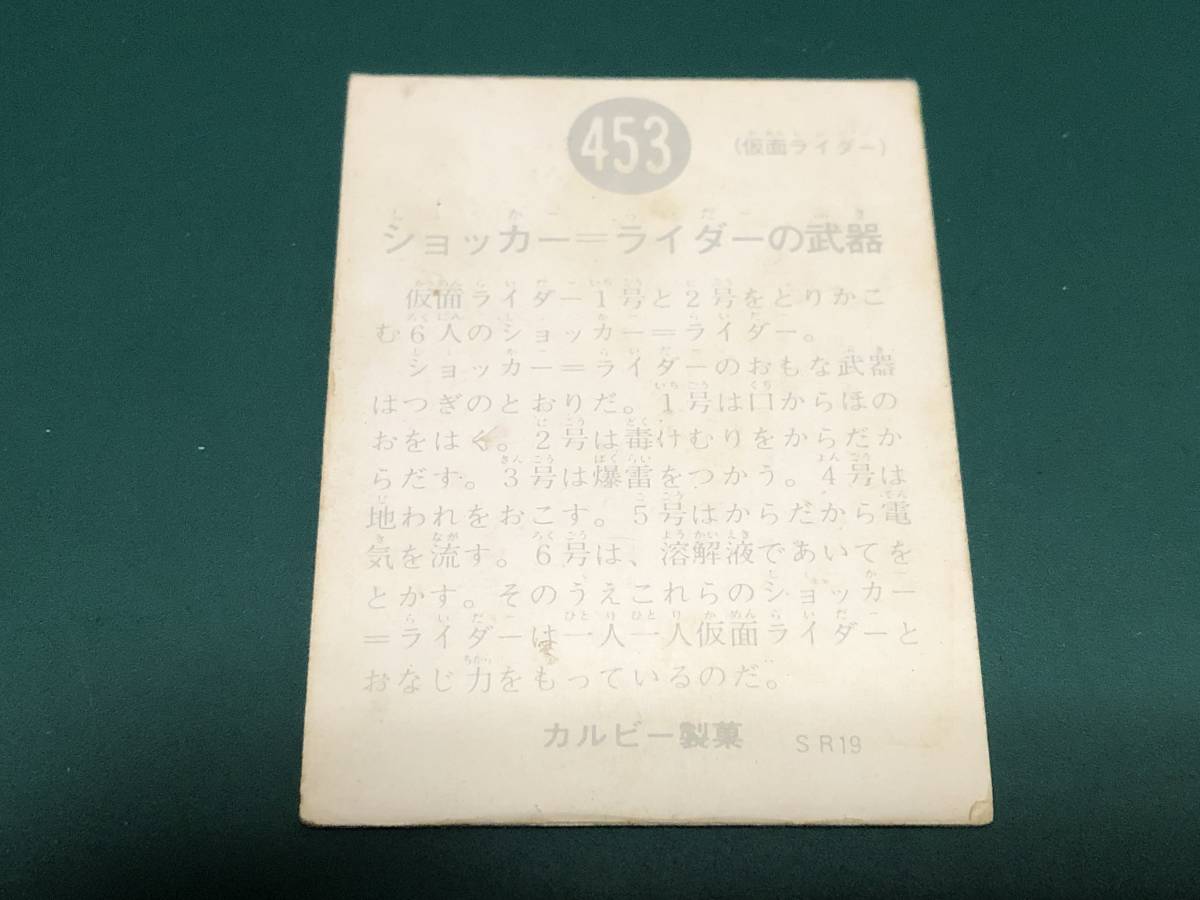 453
(仮面ライダー)
ショッカー=ライダーの武器
仮面ライダー1号と2号をとりかこ
む6人のショッカー=ライダー。
ショッカー=ライダーのおもな武器
はつぎのとおりだ。1号は口からほの
おをはく。2号は毒けむりをからだか
らだす。3号は爆雷をつかう。4号は
地われをおこす。5号はからだから電
気を流す。6号は、溶解液であいてを
とかす。そのうえこれらのショッカー
=ライダーは一人一人仮面ライダーと
おなじ力をもっているのだ。
カルビー製菓
SR19